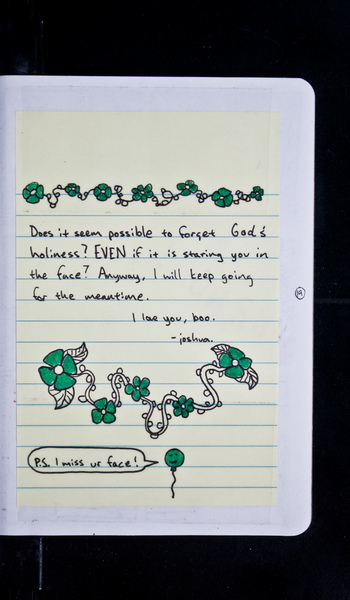 Does it seem possible to forget God's
holiness? EVEN if it is staring you in
the face? Anyway, I will keep going
for the meantime.
I love you, boo.
-joshua.
P.S. I miss ur face!
19